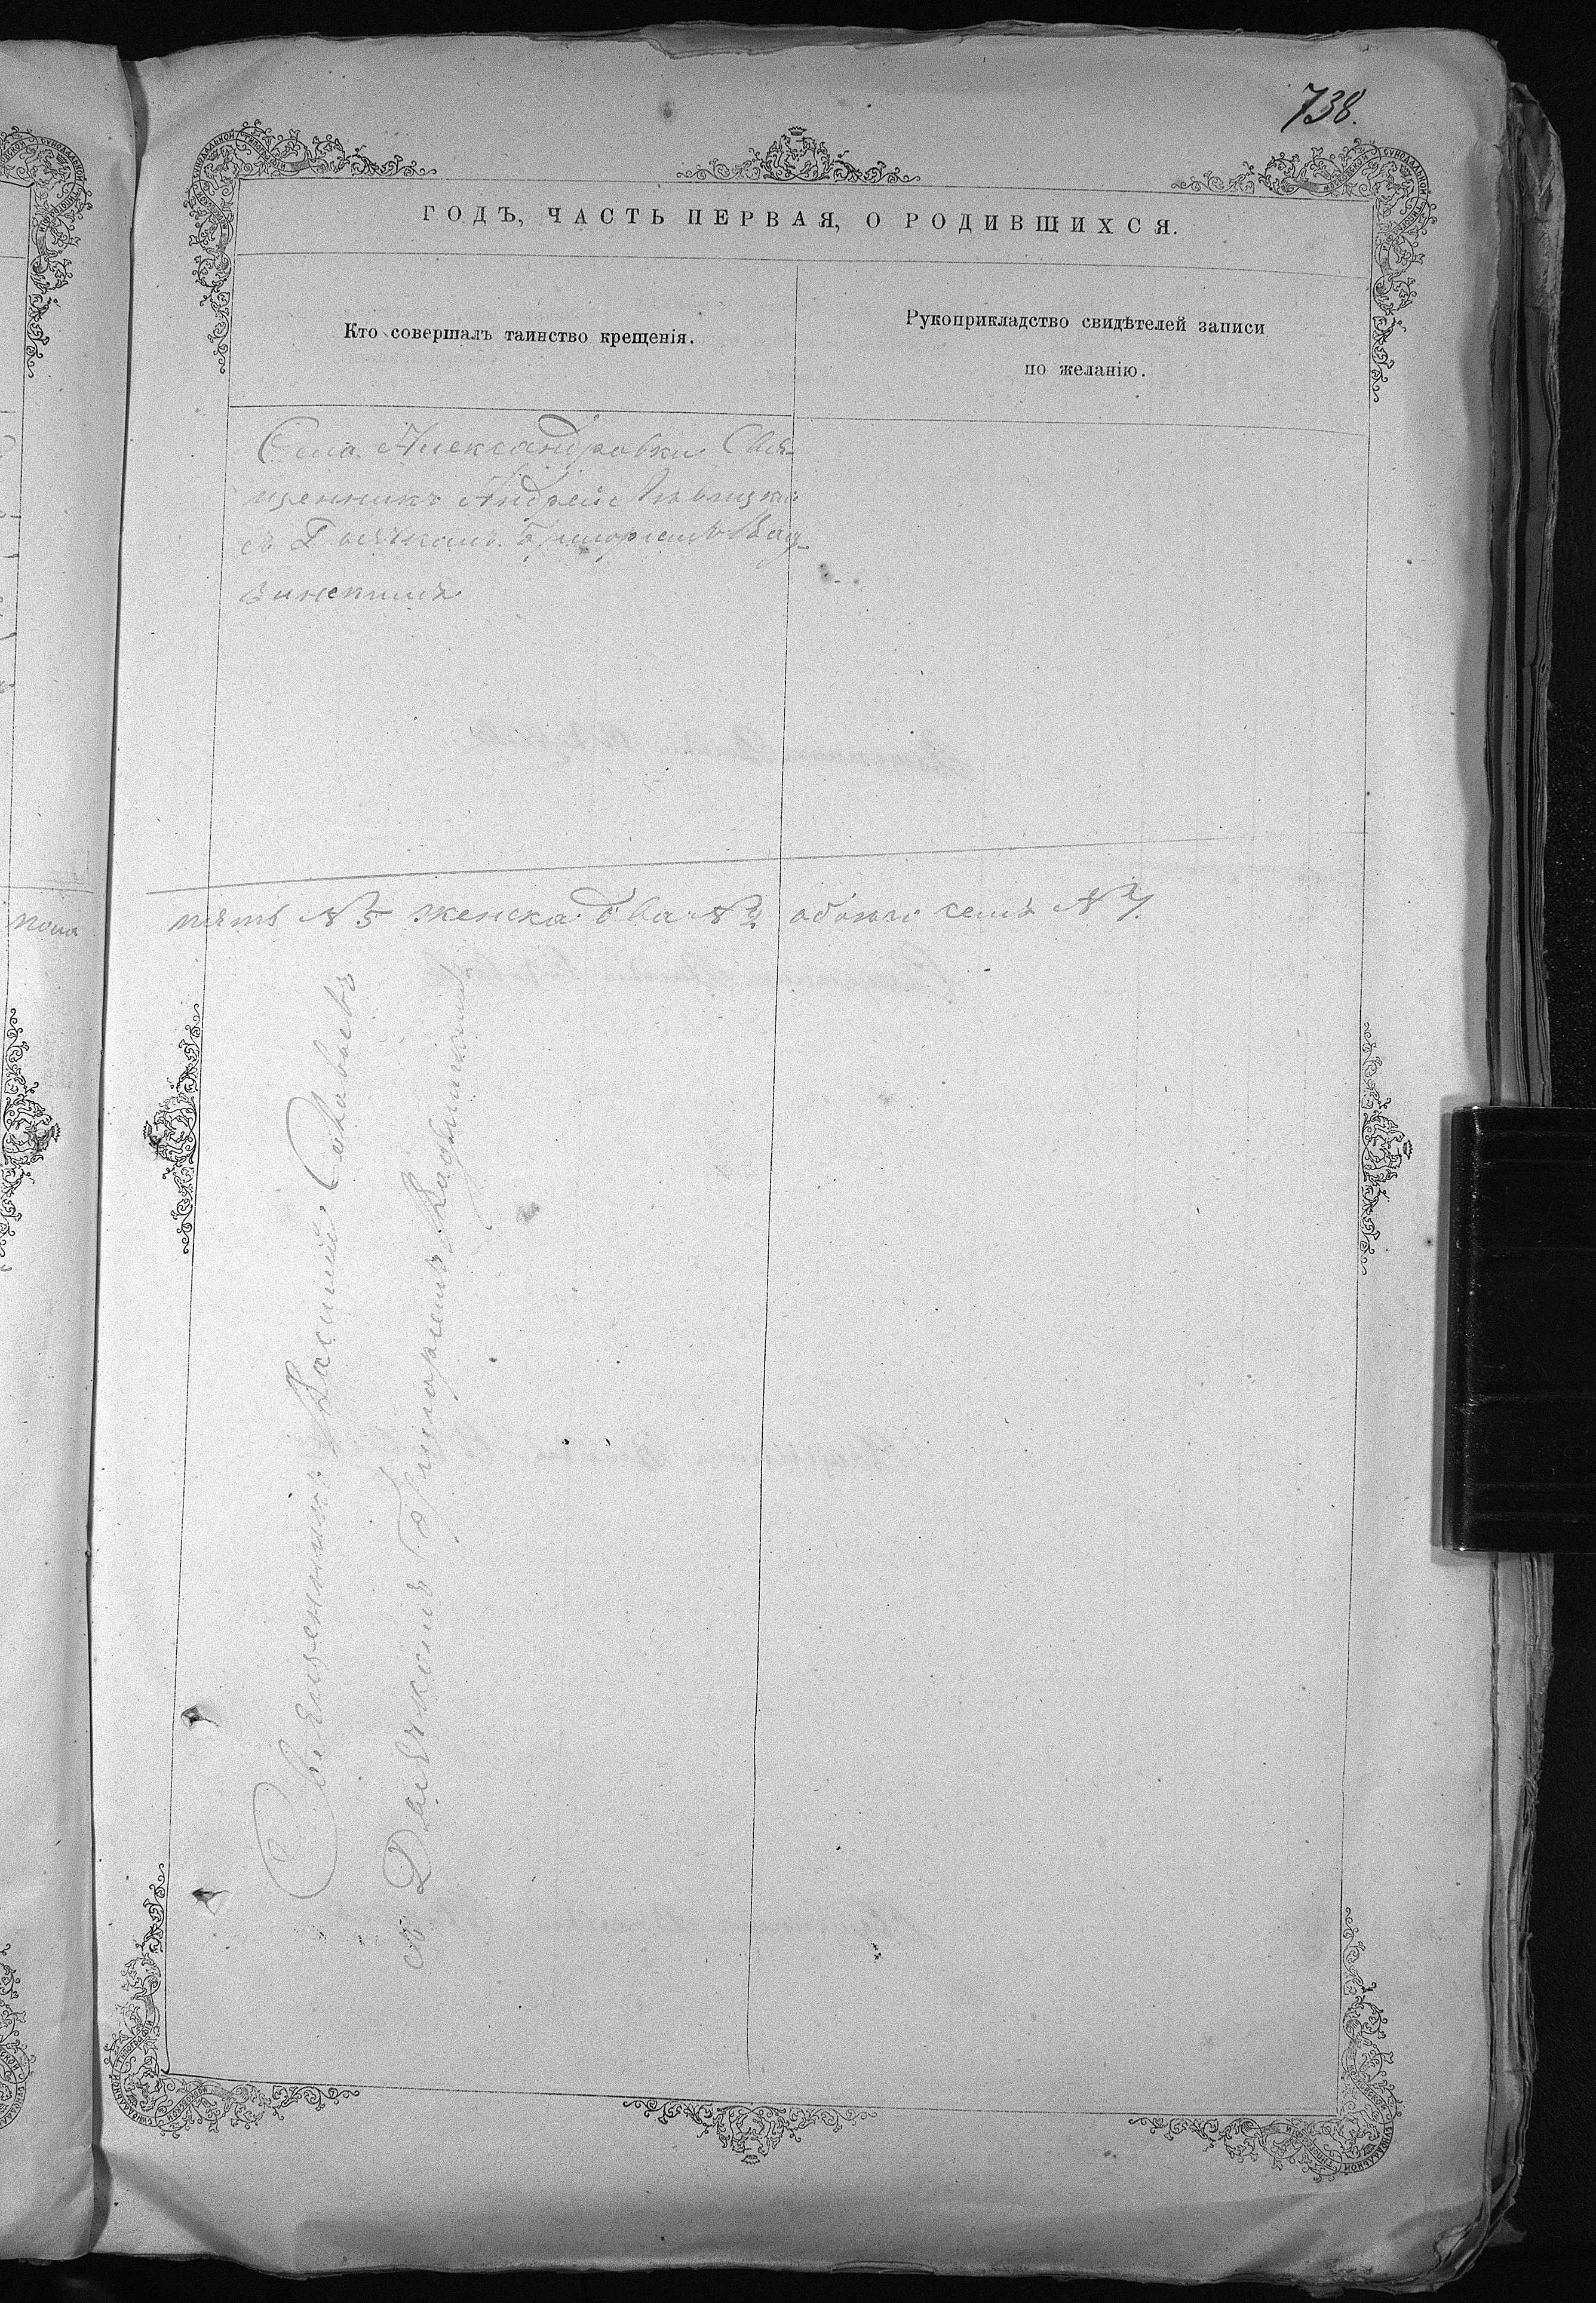 738.
ГОДЪ, ЧАСТЬ ПЕРВАЯ, О РОДИВШИХСЯ.
Кто совершалъ таинство крещенія.
Рукоприкладство свидѣтелей записи
по желанію.
Села Александровки Свя-
щенникъ Андрей
съ Дьячкомъ Григоріемъ
пола
пять № 5 женска два № 2 обоего семь № 7.
Священникъ Василій Соловьевъ
съ Дьячкомъ Григоріемъ